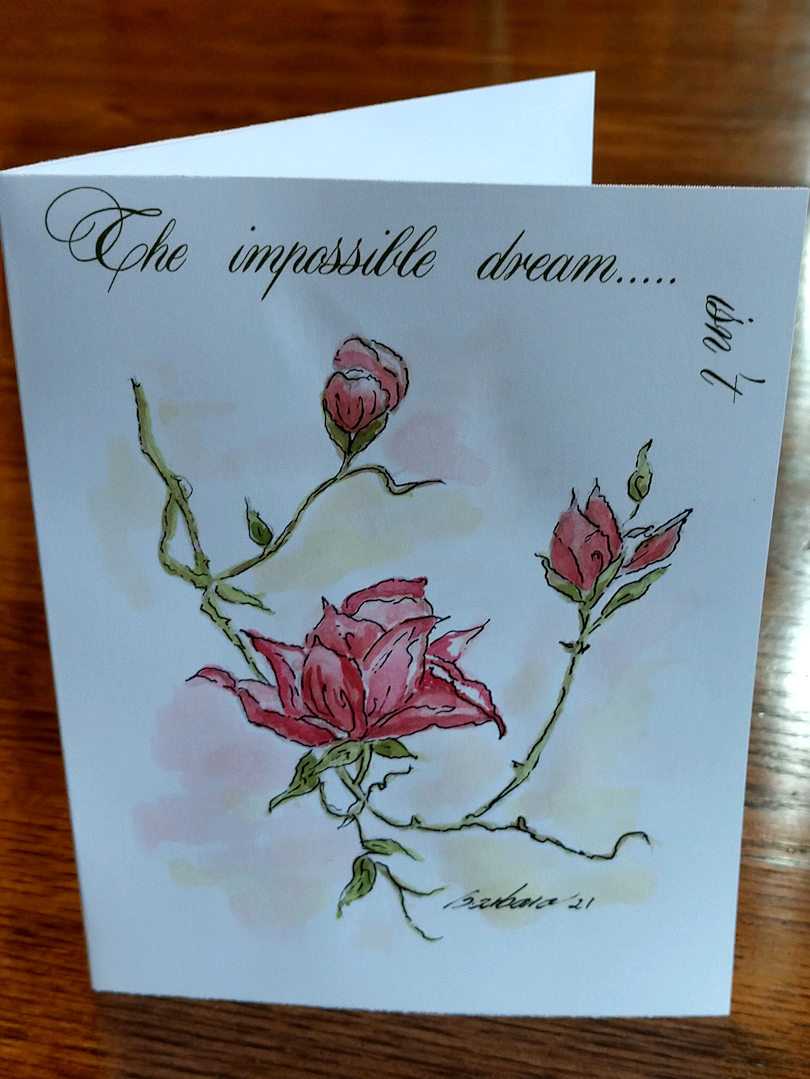 The impossible dream.....
isn't
Barbara '21